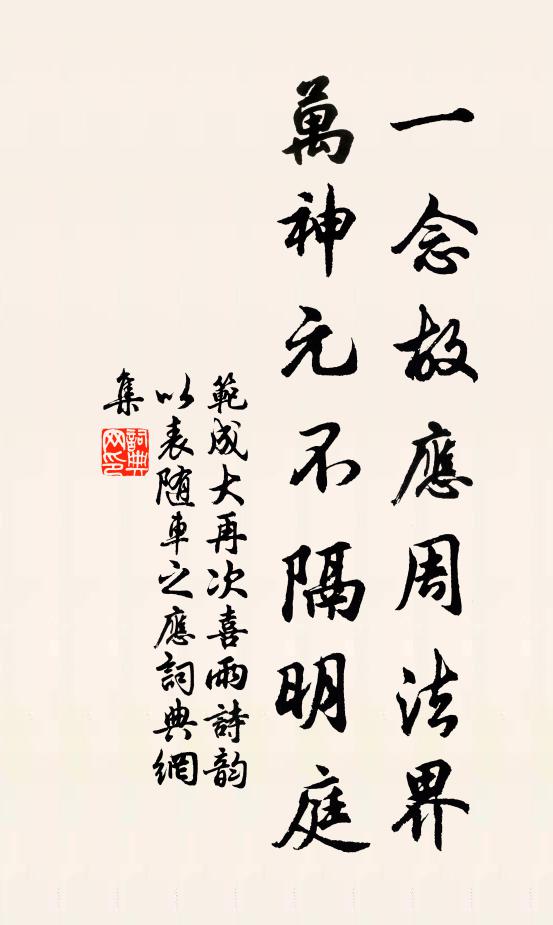 一念故應周法界
萬神元不隔明庭
範成大再次喜雨詩韵
以表随車之應詞典網
集
詞典
网印